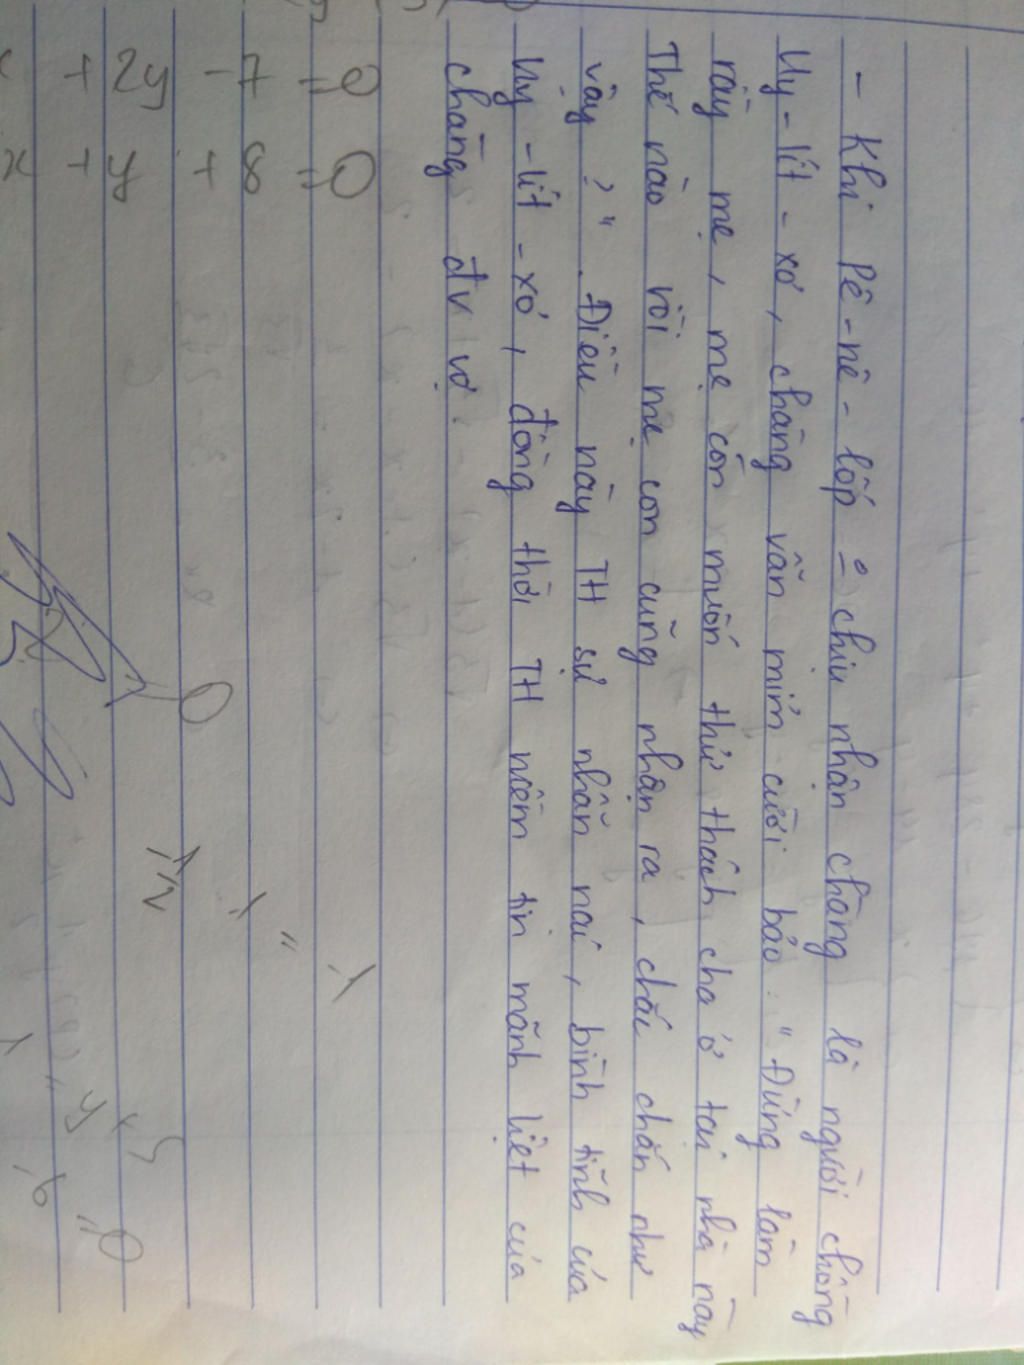 - Khi Pê-nê-lốp o chịu nhận chàng là người chồng
Uy-lít-xơ, chàng vẫn mỉm cười bảo: "Đừng làm
rầy mẹ, mẹ còn muốn thử thách cha ở tại nhà này
Thế nào rồi mẹ con cũng nhận ra, chắc chắn như
vậy?". Điều này TH sự nhẫn nại, bình tĩnh của
Uy-lít-xơ, đồng thời TH niềm tin mãnh liệt của
chàng đv vợ.
+ 2y - 7 = 0
x + y + 8 = 0